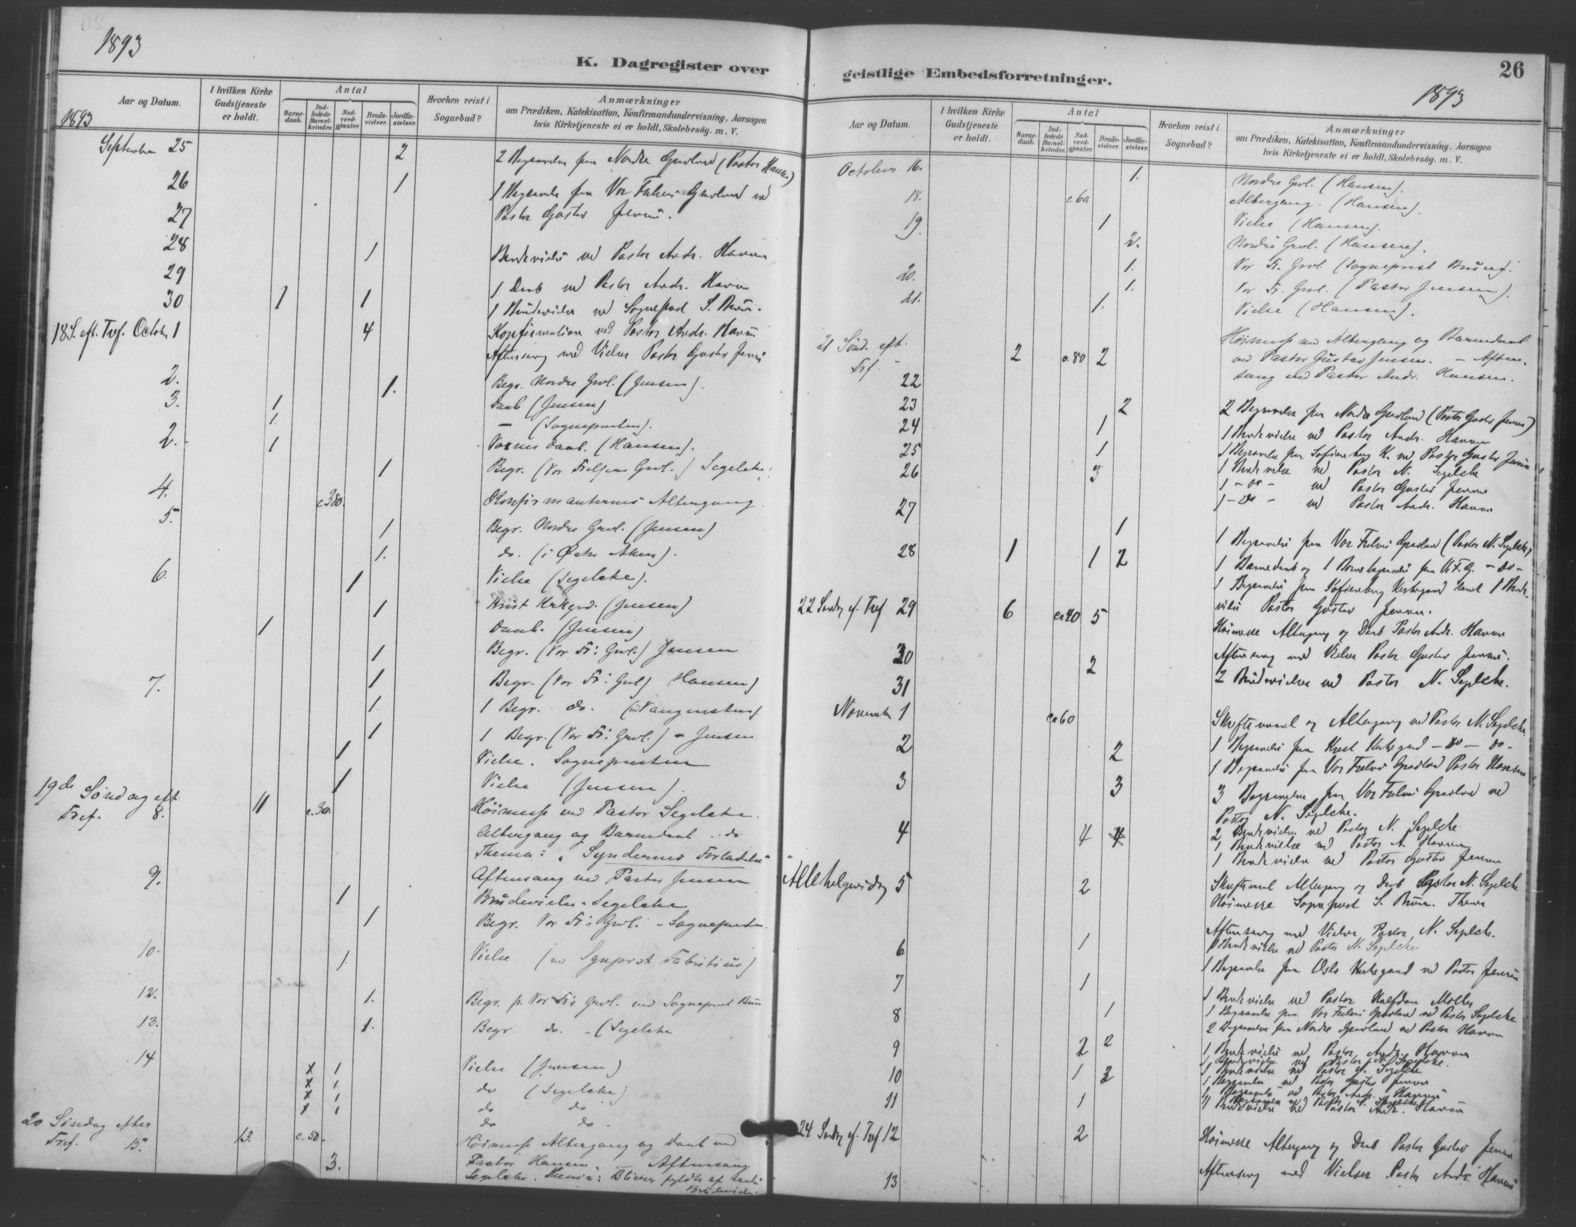 1893
K. Dagregister over
Aar og Datum.
I hvilken Kirke Gudstjeneste er holdt.
Antal
Barnedaab.
Indledede Barselkvinder.
Nadverdgjæster.
Brudevielser.
Jordfæstelser.
Hvorhen reist i Sognebud?
Anmærkninger
om Prædiken, Katekisation, Konfirmandundervisning, Aarsagen
hvis Kirketjeneste ei er holdt, Skolebesøg. m. V.
1893
September 25 2 2 Begravelser fra Nordre Gravlund (Pastor Hansen)
26 1 1 Begravelse fra Vor Frelsers Gravlund ved
27 Pastor Gustav Jensen.
28 1 Brudevielse ved Pastor Andr. Hansen
29 1 Daab ved Pastor Andr. Hansen
30 1 1 1 Brudevielse ved Sognepræst S. Bruun.
18 S. eft. Tref. October 1 4 Konfirmation ved Pastor Andr. Hansen
Aftensang med Vielser Pastor Gustav Jensen
2. 1. Begr. Nordre Gravl. (Jensen).
3. 1 Daab (Jensen)
1 — (Sognepresten).
2. 1 Daab. (Hansen).
1 Begr. (Vor Frelsers Gravl.) Segelcke.
4. c 380. Konfirmanternes Altergang.
5. 1 Begr. Nordre Gravl. (Jensen)
1. do. (i Østre Aker).
6. 1 Vielse (Segelcke).
1 Krist Kirkegrd. (Jensen)
1 Daab. (Jensen)
1 Begr. (Vor Fr: Gravl.) Jensen
7. 1 Begr. (Vor Fr: Gravl) Hansen)
1. 1 Begr. do.
1 1 Begr. (Vor Fr: Gravl.) - Jensen
1 Vielse. Sognepresten
1 Vielse (Jensen).
19de Søndag eft
Tref. 8. 11 c. 30. Høimesse ved Pastor Segelcke.
Altergang og Barnedaab .. do
Thema: "Syndernes Forladelse"
9. Aftensang ved Pastor Jensen
1 Brudevielse - Segelcke
1 Begr. Vor Fr: Gravl. - Sognepresten.
10. 1 Vielse (ved Sognprst Fabritius)
12. 1. Begr. p. Vor Frs Gravl. ved Sogneprest Bruun
13. 1. Begr. do. - (Segelcke
14 x 1 Vielse (Jensen)
x 1 do (Segelcke)
x 1 do do
1 1 do do.
20 Søndag efter
Tref. 15. 13. c. 50. Høimesse Altergang og Daab ved
3. Pastor Hansen. — Aftensang
Segelcke. Thema: Bliver fyldte af Aand
Brudevielse.
geistlige Embedsforretninger.
26
1893
Aar og Datum.
I hvilken Kirke Gudstjeneste er holdt.
Antal
Barnedaab.
Indledede Barselkvinder.
Nadverdgjæster.
Brudevielser.
Jordfæstelser.
Hvorhen reist i Sognebud?
Anmærkninger
om Prædiken, Katekisation, Konfirmandundervisning, Aarsagen
hvis Kirketjeneste ei er holdt, Skolebesøg. m. V.
October 16. 1. Nordre Grvl. (Hansen).
18. c 60 Altergang. (Hansen).
19. 1 Vielse (Hansen).
2. Nordre Gravl. (Hansen).
20. 1. Vor Fr. Gravl (Sogneprest Bruun).
1. Vor Fr. Gravl. (Pastor Jensen).
21. 1. Vielse (Hansen).
21 Sønd. eft. 2 c. 80 2 Høimesse med Altergang og Barnedaab
Tref. ved Pastor Gustav Jensen. — Aften-
22 sang ved Pastor Andr. Hansen.
23 2 2 Begravelser fra Nordre Gravlund (Pastor Gustav Jensen)
24 1 1 Brudevielse ved Pastor Andr. Hansen
25 1 1 Begravelse fra Sofienberg K. ved Pastor Gustav Jensen
26 3 1 Brudevielse ved Pastor N. Segelcke
1 - do - ved Pastor Gustav Jensen
27 1 - do - ved Pastor Andr. Hansen
1 1 Begravelse fra Vor Frelsers Gravlund (Pastor N. Segelcke)
28 1 1 2 1 Barnedaab og 1 Begravelse fra V. F. G. - do -
1 Begravelse fra Sofienberg Kirkegaard samt 1 Brude-
vielse Pastor Gustav Jensen.
22 Søndg ef. Tref 29 6 ca 40 5 Høimesse Altergang og Daab Pastor Andr. Hansen
Aftensang med Vielser Pastor Gustav Jensen.
30 2 2 Brudevielser ved Pastor N. Segelcke.
31
November 1 ca 60 Skriftemaal og Altergang ved Pastor N. Segelcke
2 2 1 Begravelse fra Krist Kirkegaard — do — do -
1 Begravelse fra Vor Frelsers Gravlund Pastor Hansen
3 3 3 Begravelser fra Vor Frelsers Gravlund ved
Pastor N. Segelcke.
4 4 4 2 Brudevielser ved Pastor N. Segelcke
1 Brudevielse ved Pastor A. Hansen
1 Brudevielse ved Pastor Gustav Jensen
Allehelgensdag 5 2 Skriftemaal Altergang og Daab Pastor N. Segelcke
Høimesse Sognepræst S. Bruun. Thema
Aftensang med Vielser Pastor N. Segelcke.
6 1 1 Brudevielse ved Pastor N. Segelcke
1 Begravelse fra Oslo Kirkegaard ved Pastor Jensen
7 1 1 Brudevielse ved Pastor Halfdan Møller
8 1 1 Begravelse fra Vor Frelsers Gravlund ved Pastor Segelcke
2 Begravelser fra Nordre Gravlund ved Pastor Hansen
9 2 2 1 Brudevielse ved Pastor Andr. Hansen
1 Brudevielse ved Pastor N. Segelcke
10 1 3 1 Begravelse ved Pastor Gustav Jensen
11 1 1 Brudevielse ved Pastor Andr. Hansen
24 Søndg ef. Tref 12 2 Høimesse Altergang og Daab Pastor Gustav Jensen
13 Aftensang med Vielser Pastor Andr Hansen